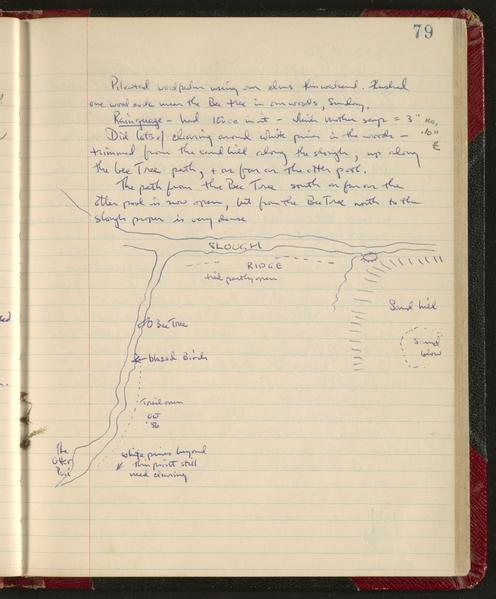 79
Pileated woodpecker using our elms this weekend. Flushed
one woodcock near the Bee tree in our woods, Sunday.
Rainguage - had 10 cc in it - which mother says = 3" no,
.10"
Did lots of clearing around white pines in the woods -
trimmed from the sand hill along the slough, up along
the bee Tree path, + as far as the otter pool.
The path from the Bee Tree south as far as the
Otter pool is now open, but from the Bee Tree north to the
slough proper is very dense
SLOUGH
RIDGE
trail partly open
Sand hill
Sand
blow
Bee Tree
blazed Birch
Trail open
Oct
'56
The
Otter
Pool
white pines beyond
this point still
need clearing